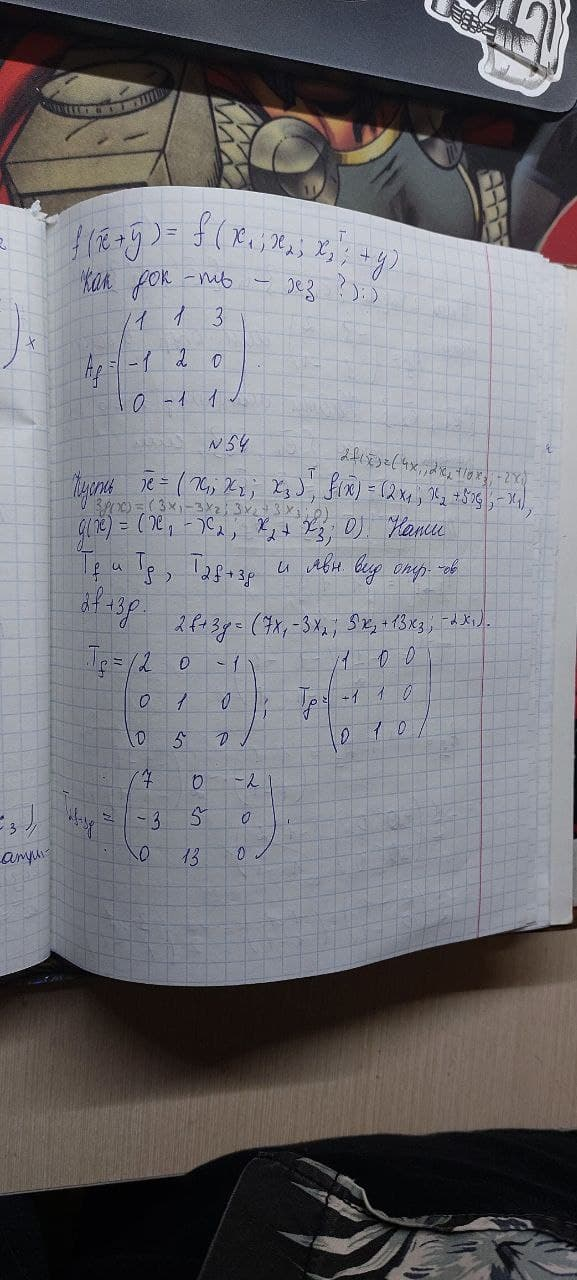 f(x̄+ȳ) = f(x₁; x₂; x₂ᵀ; +y)
Как док-ть – хз ?):)
A_f = (1 1 3
-1 2 0
0 -1 1).
N54
2f(x̄)=(4x₁; 2x₂+10x₃; -2x₁)
Пусть x̄ = (x₁; x₂; x₃)ᵀ, f(x̄) = (2x₁; x₂+5x₃; -x₁),
3g(x)=(3x₁-3x₂; 3x₂+3x₃; 0)
g(x̄) = (x₁-x₂; x₂+x₃; 0). Найти
T_f и T_g, T_2f+3g и явн. вид опер-ов
2f+3g.
2f+3g = (7x₁-3x₂; 5x₂+13x₃; -2x₁).
T_f = (2 0 -1
0 1 0
0 5 0); T_g = (1 0 0
-1 1 0
0 1 0)
T_2f+3g = (7 0 -2
-3 5 0
0 13 0).